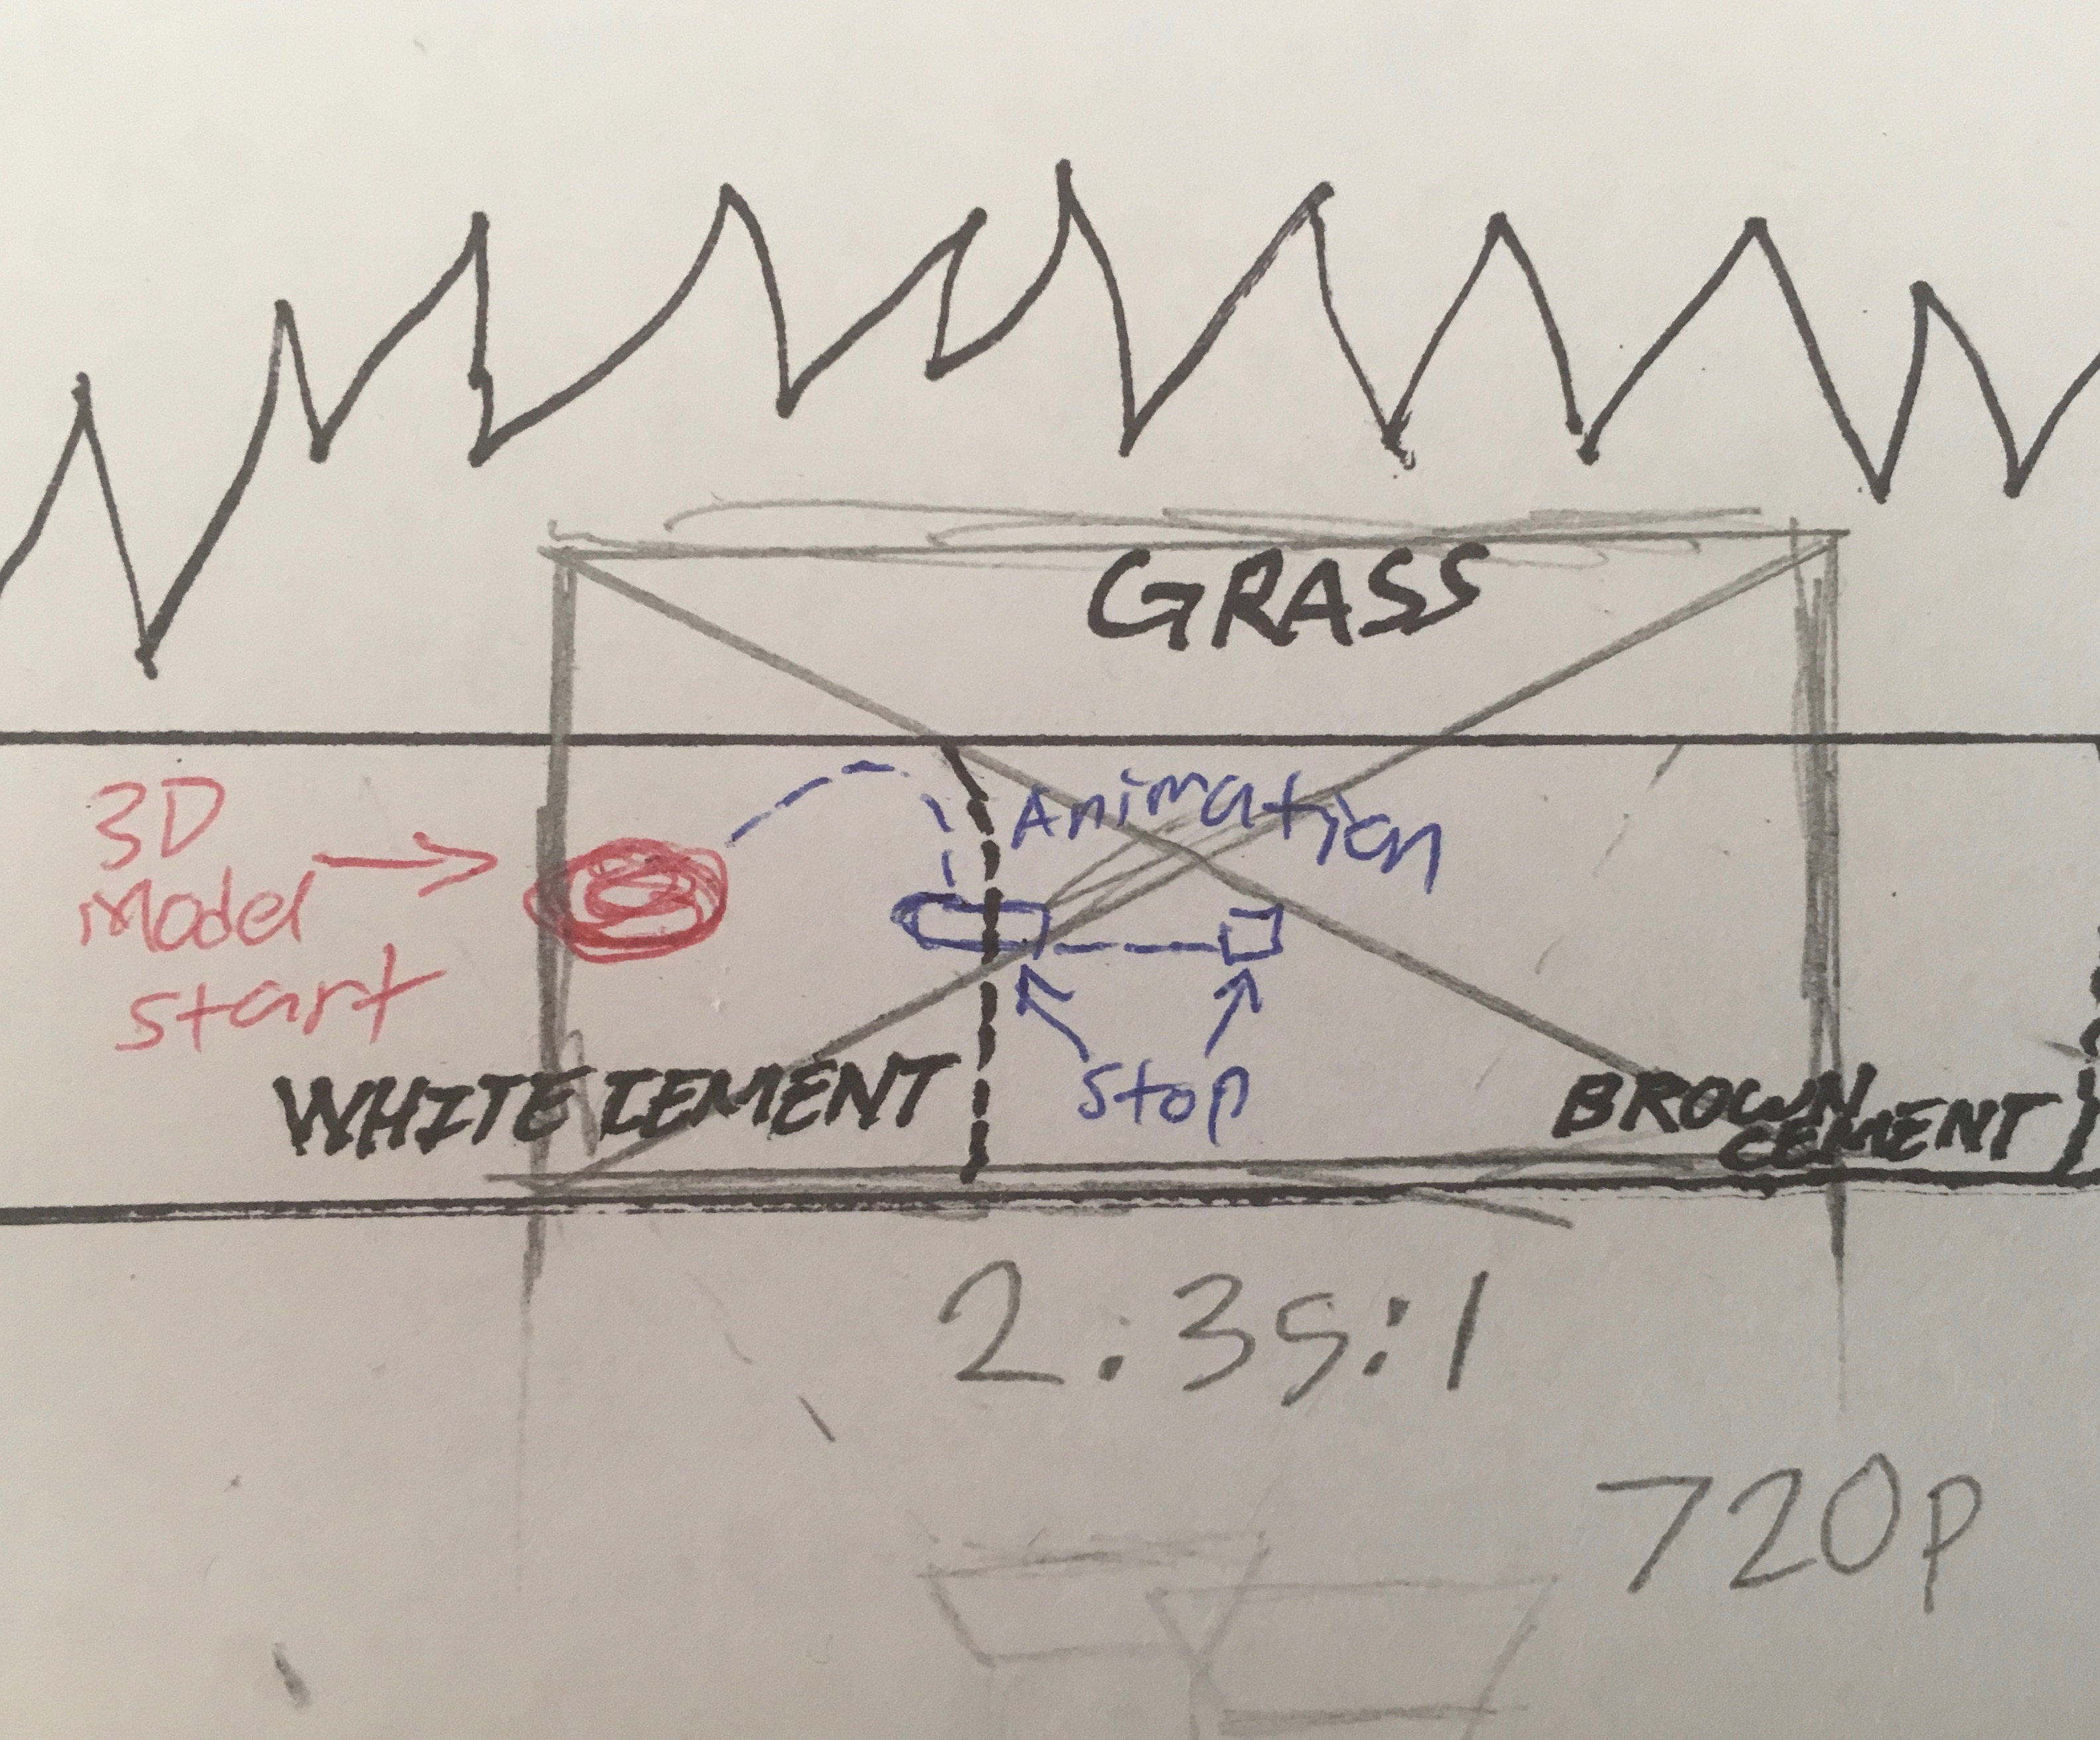 GRASS
3D
model
start
Animation
Stop
WHITE CEMENT
BROWN
CEMENT
2.35:1
720p